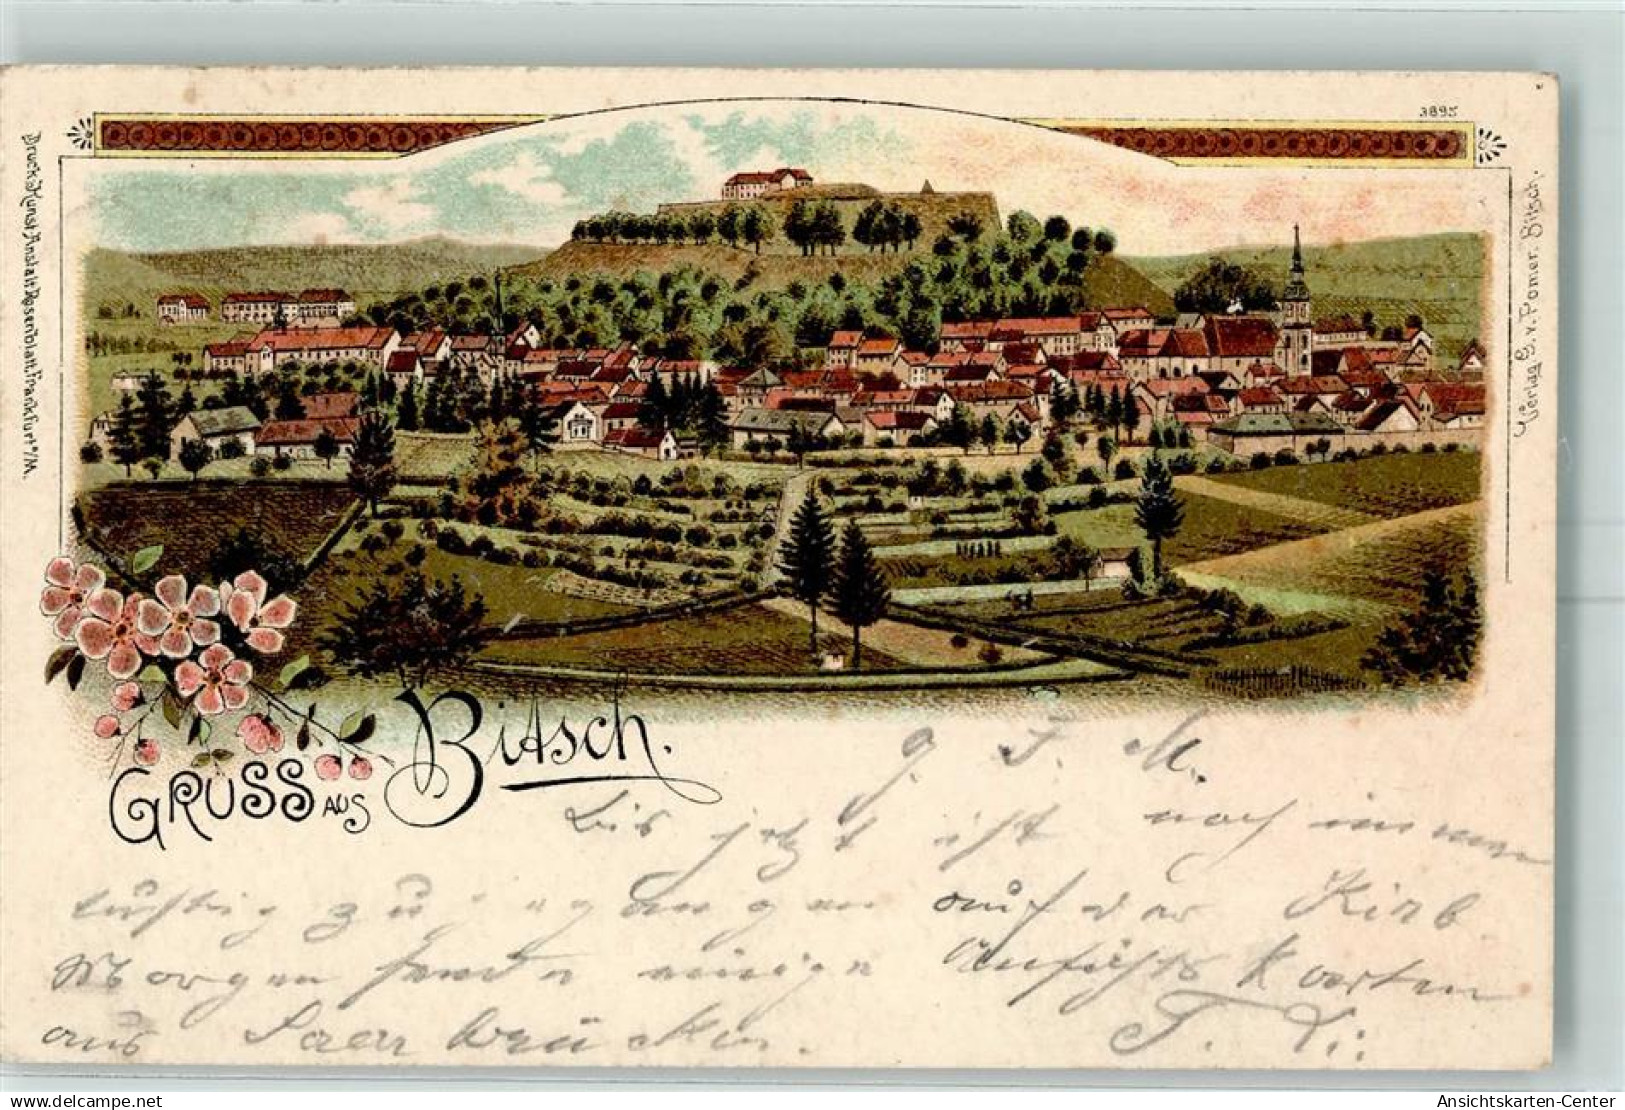 3895
Druck: Kunst Anstalt Rosenblatt, Frankfurt a/M.
Verlag G. v. Pomer. Bitsch.
GRUSS AUS Bitsch.
g. F. M.
Bis jetzt ist noch immer
lustig zugegangen auf der Kirb
Morgen sende einige Ansichts Karten
aus Saarbrücken. F. Li:
Ansichtskarten-Center
delcampe.net